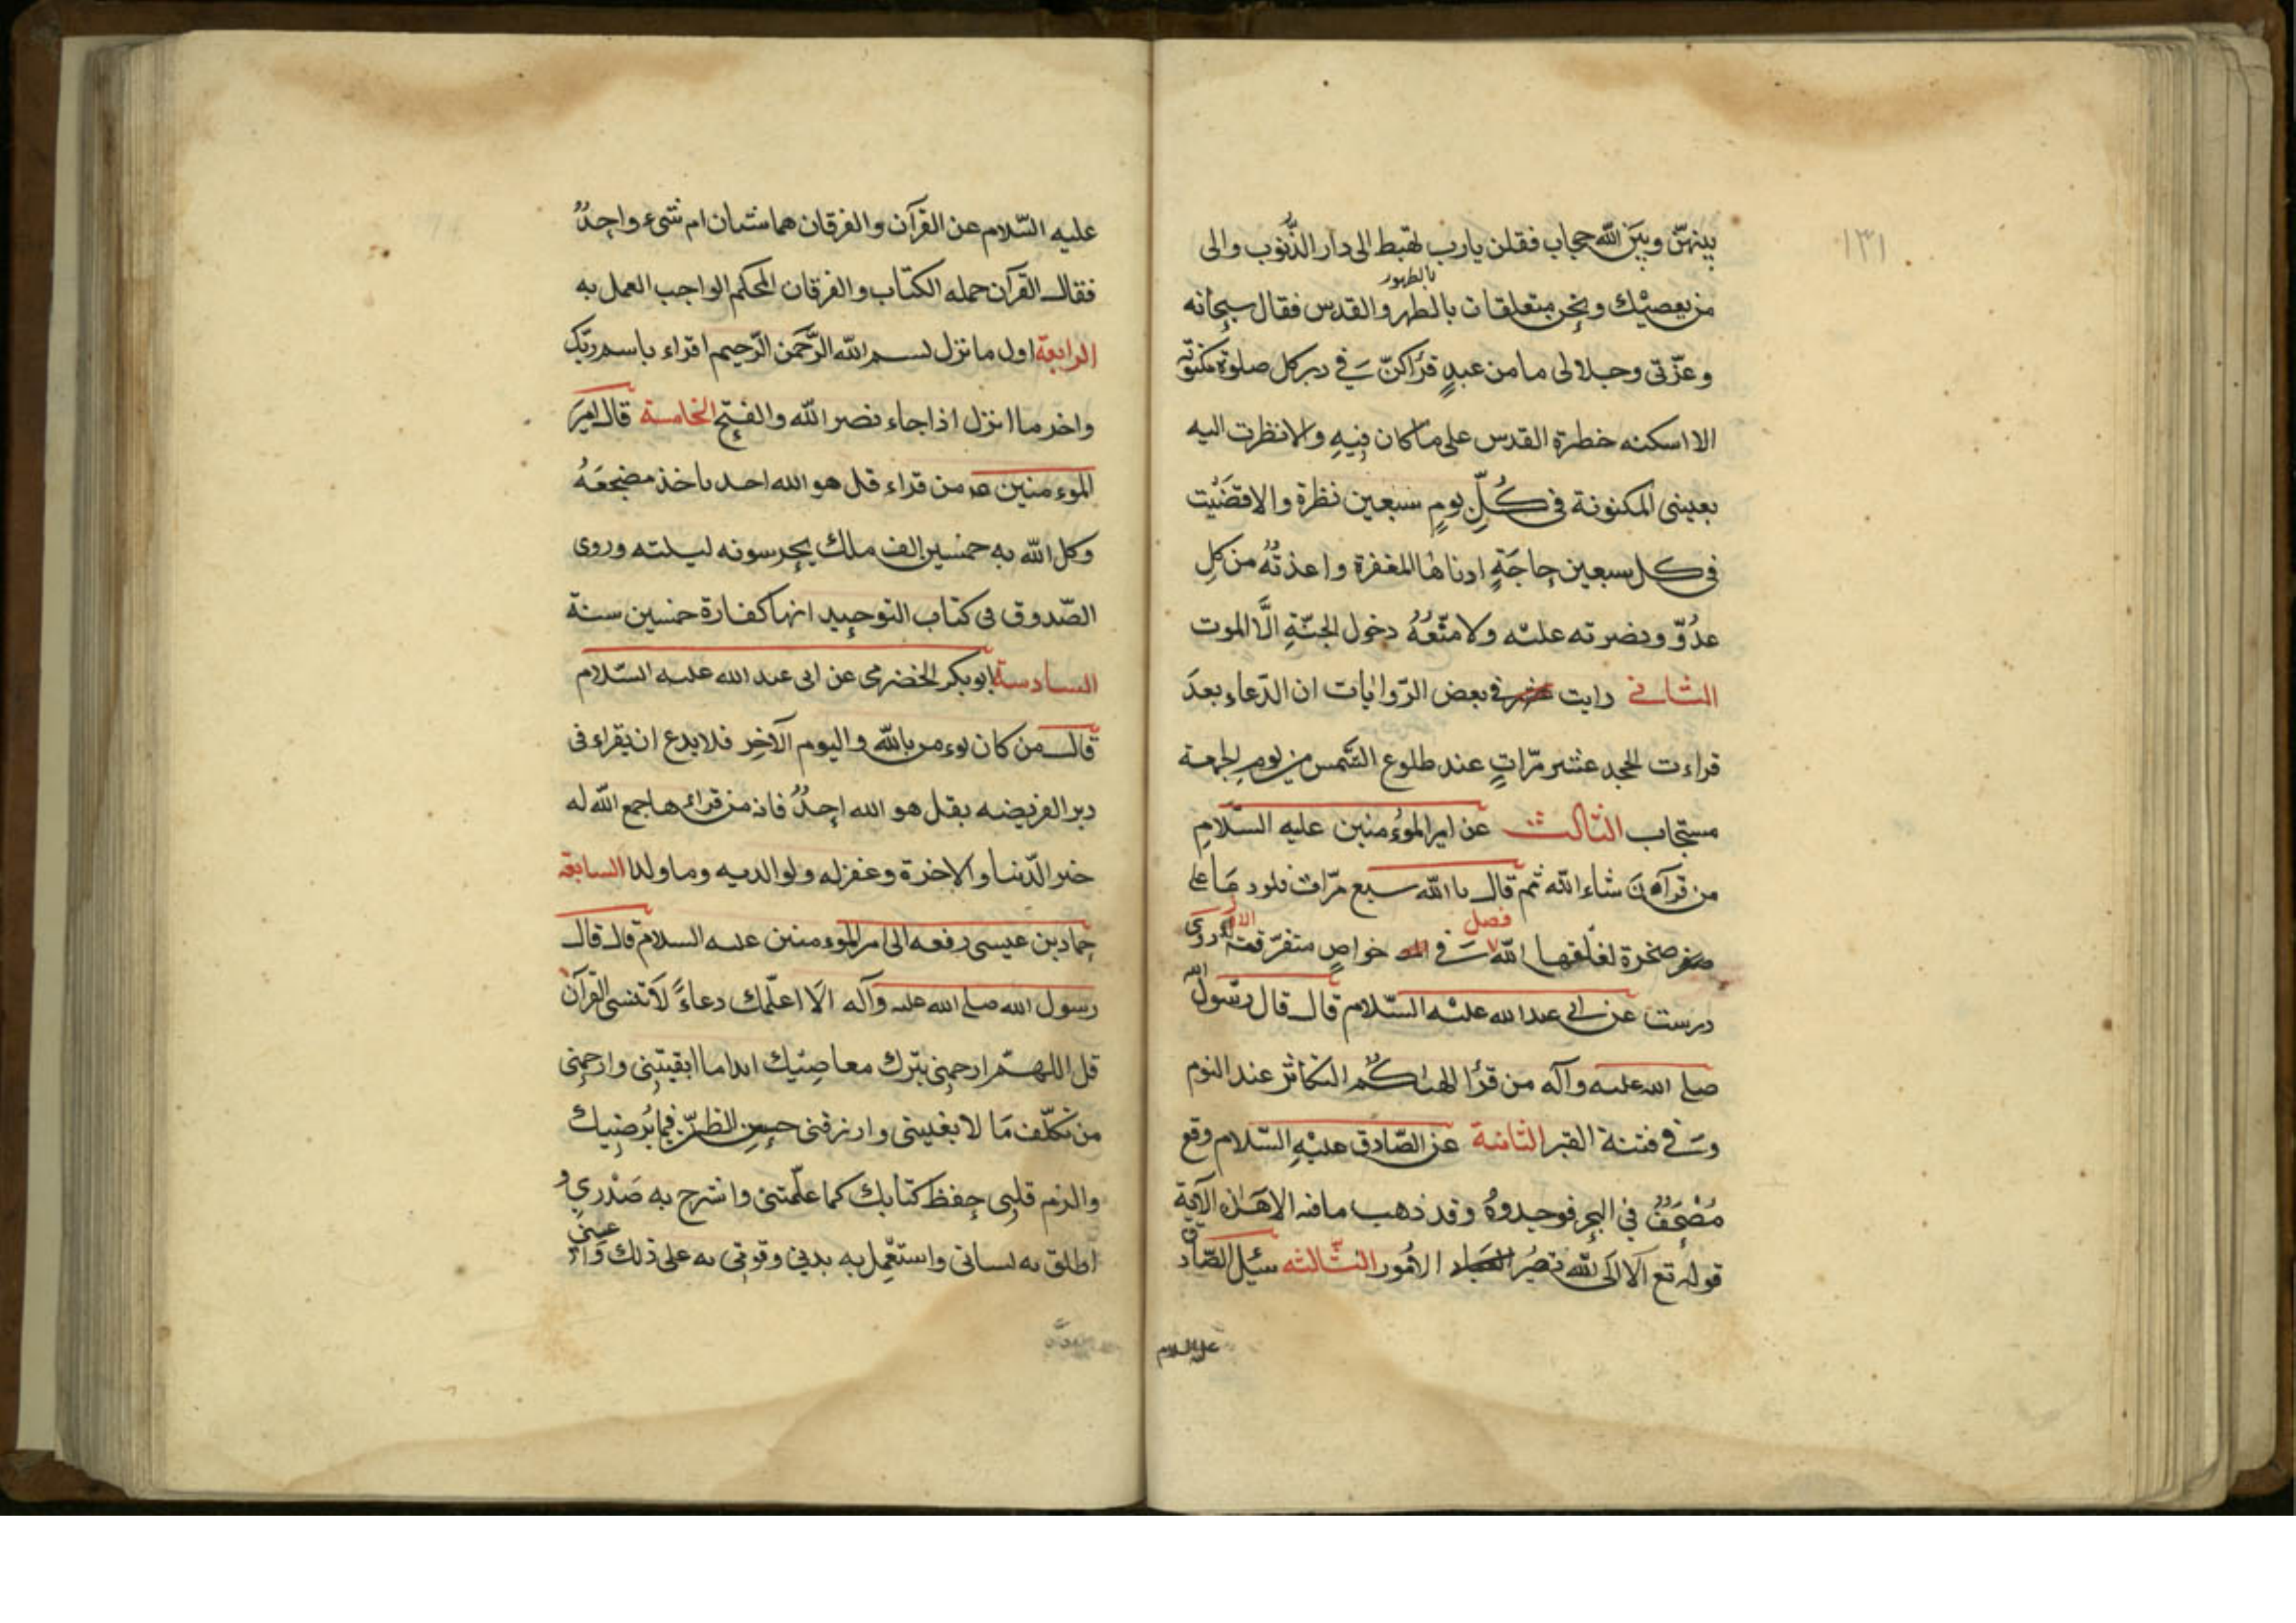 ١٣١
بينهنّ وبَينَ الله حجاب فقلن يارب تهبط الى دار الذّنوب والى
بالطهور
من يعصيْك ونحن متعلقات بالطهر والقدس فقال سبحانه
وعزّتى وجلالى ما من عبدٍ قراكنّ فى دبر كل صلوة مكتوبة
الا اسكنه خطرة القدس على ما كان فيهِ والا نظرت اليه
بعينى المكنونة فى كُلّ يومٍ سبعين نظرة والا قضَيْت
فى كل سبعين حاجَةٍ ادناها المغفرة واعذتُهُ من كلِ
عدُوّ ونصرته عليْه ولا منّعُهُ دخول الجنّةِ الّا الموت
الثانى رايت فى بعض الرّوايات ان الدّعاء بعدَ
قراءت الجحد عشر مرّاتٍ عند طلوع الشّمس من يوم الجمعة
مستجاب الثالث عن امير الموُمنين عليه السّلامِ
من قرآءنَ شاء الله ثم قال يا الله سبع مرّات فلو دعَا على
فصل
صخرة لفلقها الله فى خواصٍ متفرّقة الاول روى
درست عن ابى عبد الله عليْه السّلام قال قال رسُول الله
صلى الله عليه وآله من قرُا الهٰيكُم التكاثر عند النوم
وقى فتنة القبر الثانية عن الصّادق عليْهِ السّلام وقع
مُصْحَفٌ فى البحر فوجدوهُ وقد ذهب ما فيه الا هَذه الآية
قوله تع الآ الَى الله تصيرُ الامُور الثّالثه سئِل الصّادق
عليه السلام
عليه السّلام عن القرآن والفرقان هما شيئان ام شىء واحِدٌ
فقال القرآن جمله الكتاب والفرقان المحكم الواجب العمل به
الرابعة اول ما نزل بسم الله الرَّحمن الرّحيم اقراء باسم ربّك
واخر ما انزل اذا جاء نصر الله والفتح الخامسة قال امير
الموءمنين ص من قراء قل هو الله احد ياخذ مضجعَهُ
وكل الله به خمسين الف ملك يحرسونه ليلته وروى
الصّدوق فى كتاب التوحيد انها كفارة خمسين سنة
السادسة ابو بكر الحضرمى عن ابى عبد الله عليه السّلام
قال من كان يوءمن بالله واليوم الآخِر فلا يدع ان يقراء فى
دبر الفريضه بقل هو الله احِدٌ فان من قراءها جمع الله له
خير الدّنيا والاخرة وغفر له ولوالديه وما ولدا السابعة
حماد بن عيسى رفعه الى امير الموءمنين عليه السلام قال قال
رسول الله صلى الله عليه وآله الَا اعلّمك دعاءً لا تنسى القرآن
قل اللهمّ ارحمنى بترك معاصِيْك ابدا ما ابقيتِنى وارحمنِى
من تكلّف مَا لا يعنينى وارزقنى حسن النظر فيما يُرضِيك
والزم قلبِى حِفظ كتابك كما علّمتنى واشرح به صَدْرى و
اطلق به لسانى واستعْمِل به بدنى وقونِى به على ذلك وَاعنى